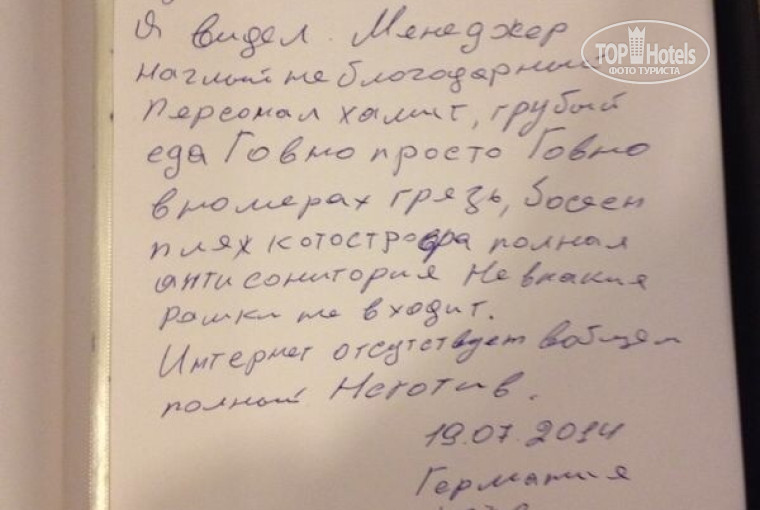 Я видел. Менеджер
TOP Hotels
ФОТО ТУРИСТА
наглый неблогодарный
Персонал хамит, грубый
еда Говно просто Говно
в номерах грязь, босеен
плях котострофра полная
анти сонитория Не вкакия
рамки не входит.
Интернет отсутствует вобщем
полный Неготив.
19.07.2014
Германия